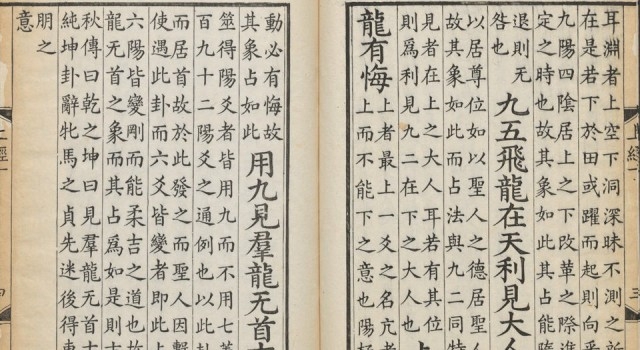 耳淵者上空下洞深昧不測之所
在是若下於田或躍而起則向乎
九陽四陰居上之下改革之際進
定之時也故其象如此其占能隨
退則无
咎也
九五飛龍在天利見大人
以居尊位如以聖人之德居聖人
故其象如此而占法與九二同特
見者在上之大人耳若有其位
則爲利見九二在下之大人也
上
龍有悔
上者最上一爻之名亢者
上而不能下之意也陽極
動必有悔故
其象占如此
用九見羣龍无首
筮得陽爻者皆用九而不用七蓋
百九十二陽爻之通例也以此卦
而居首故於此發之而聖人因繫
使遇此卦而六爻皆變者即此上
六陽皆變剛而能柔吉之道也故
龍无首之象而其占爲如是則
秋傳曰乾之坤曰見羣龍无首
純坤卦辭牝馬之貞先迷後得東
朋之
意